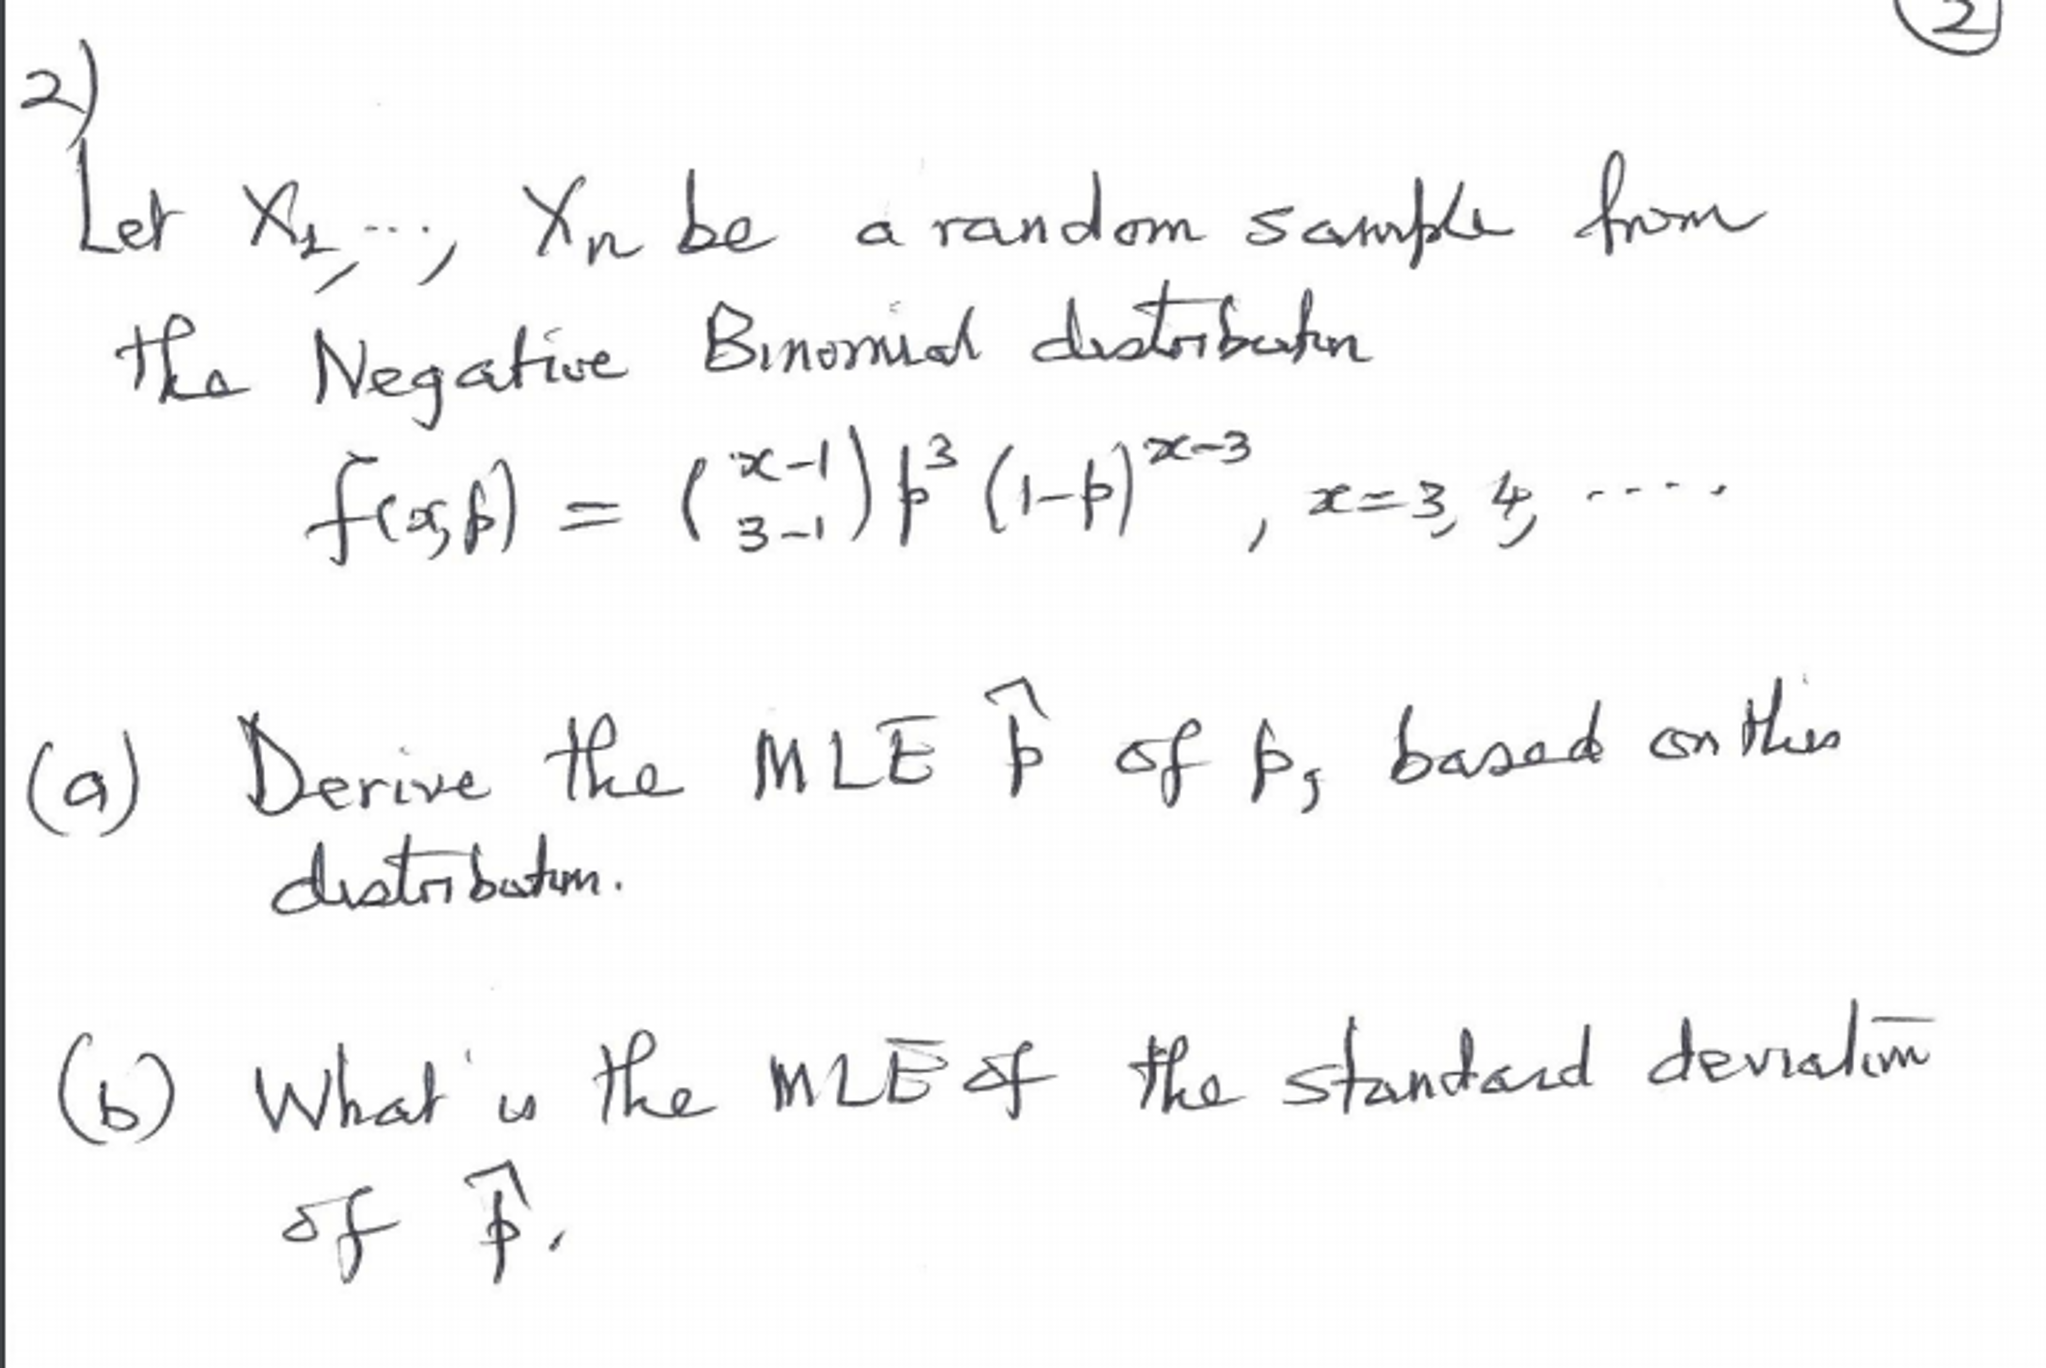 2
2)
Let X₁, ..., Xₙ be a random sample from
the Negative Binomial distribution
f(x,p) = (x-1 3-1) p³ (1-p)ˣ⁻³, x=3, 4, ....
(a) Derive the MLE p̂ of p, based on this
distribution.
(b) What is the MLE of the standard deviation
of p̂.